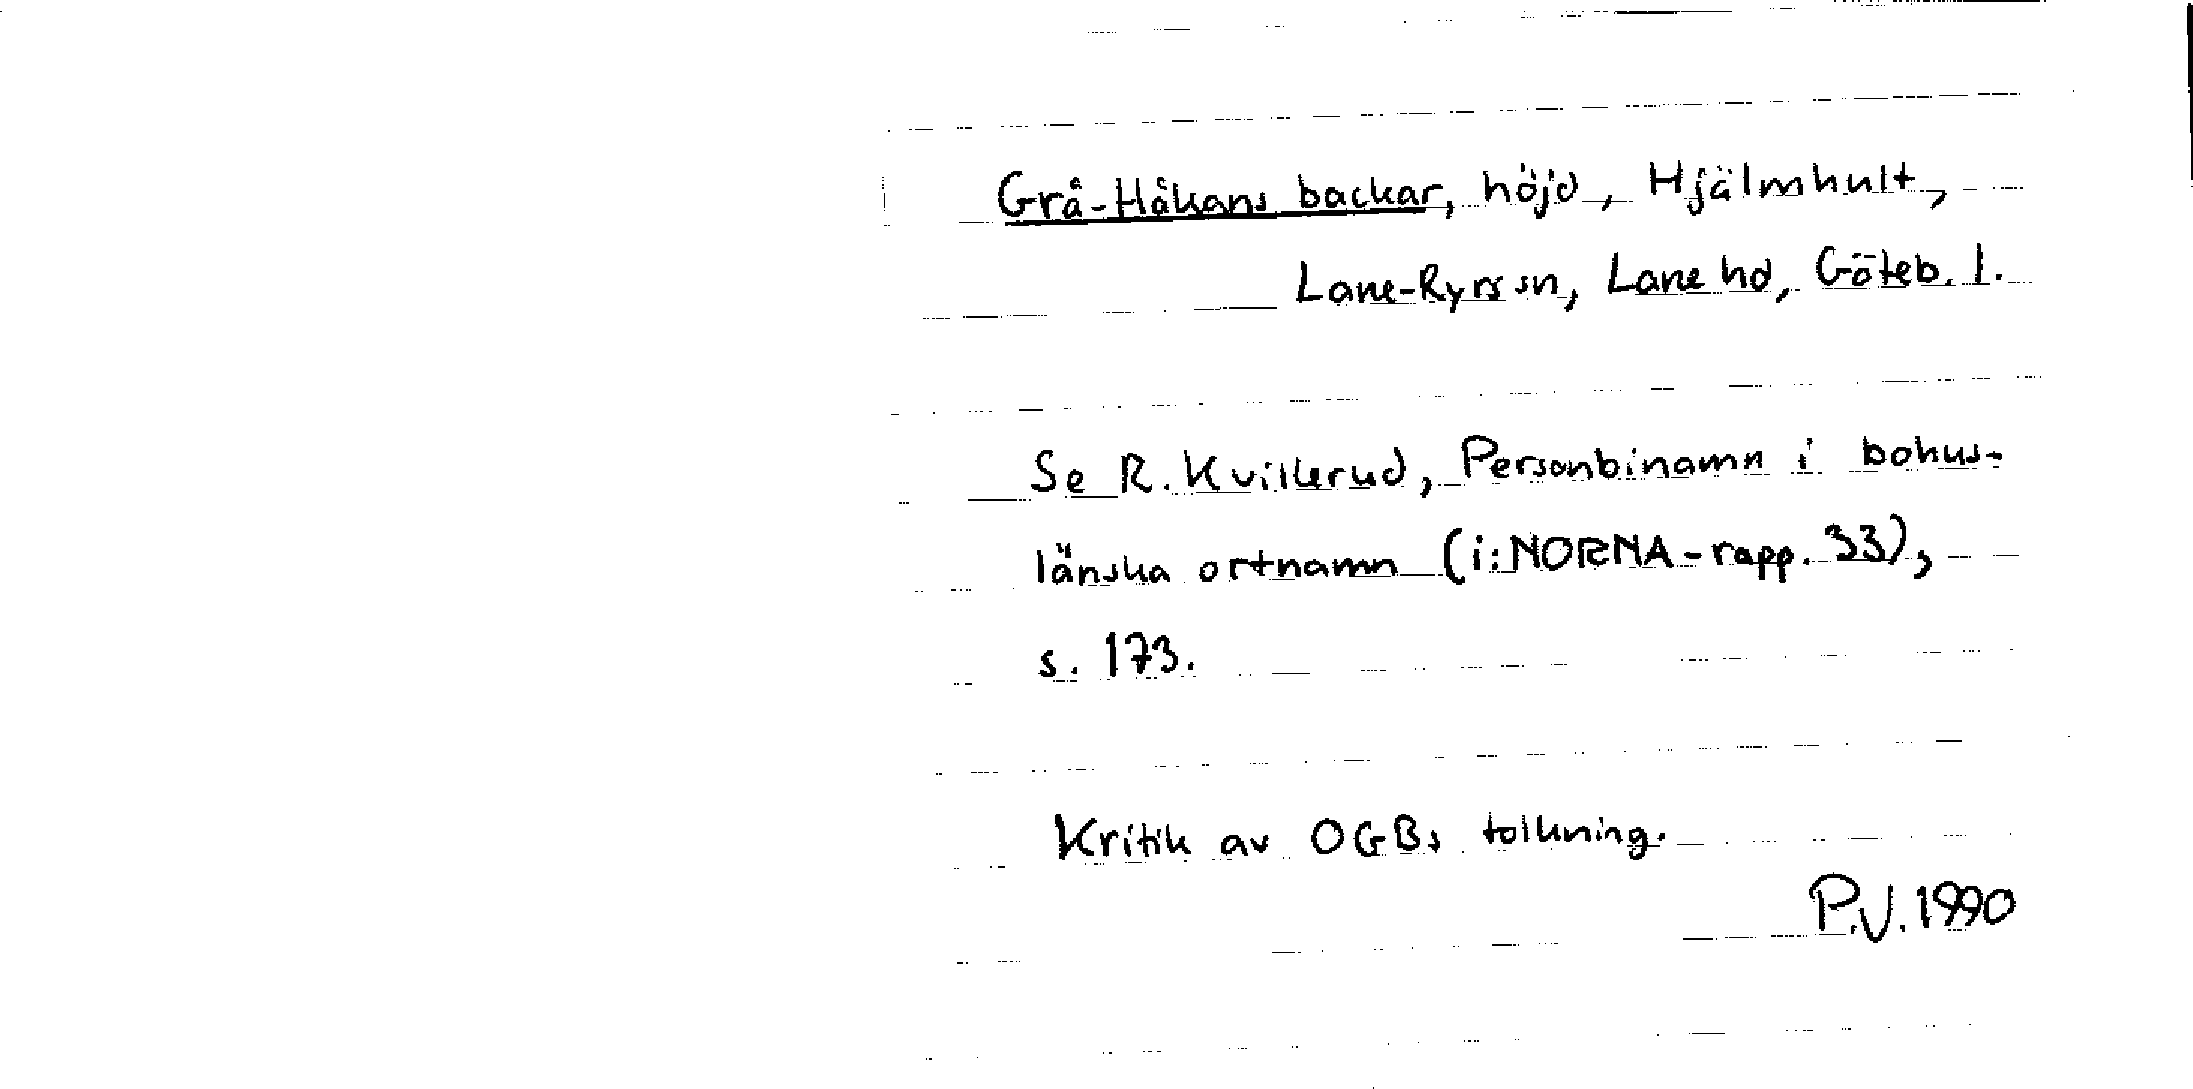 Grå-Håkans backar, höjd, Hjälmhult,
Lane-Ryrs sn, Lane hd, Göteb. l.
Se R. Kvillerud, Personbinamn i bohus-
länska ortnamn (i: NORNA-rapp. 33),
s. 173.
Kritik av OGBs tolkning.
P.V. 1990